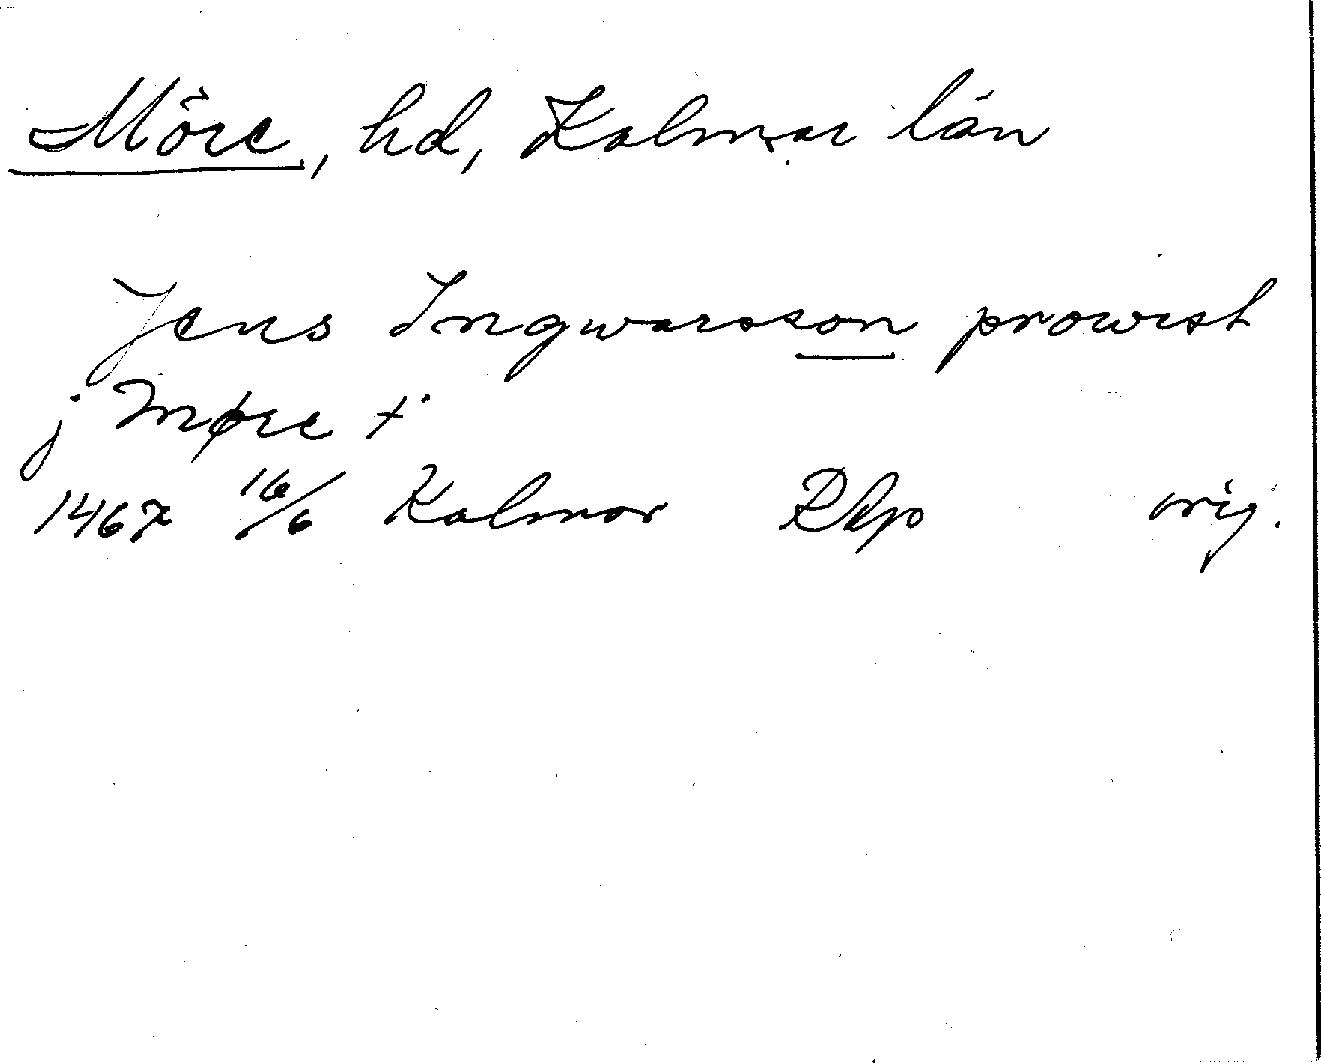 Möre, hd, Kalmar län
Jens Ingwarsson prowest
j Møre +
1467 16/6 Kalmar RAp orig.